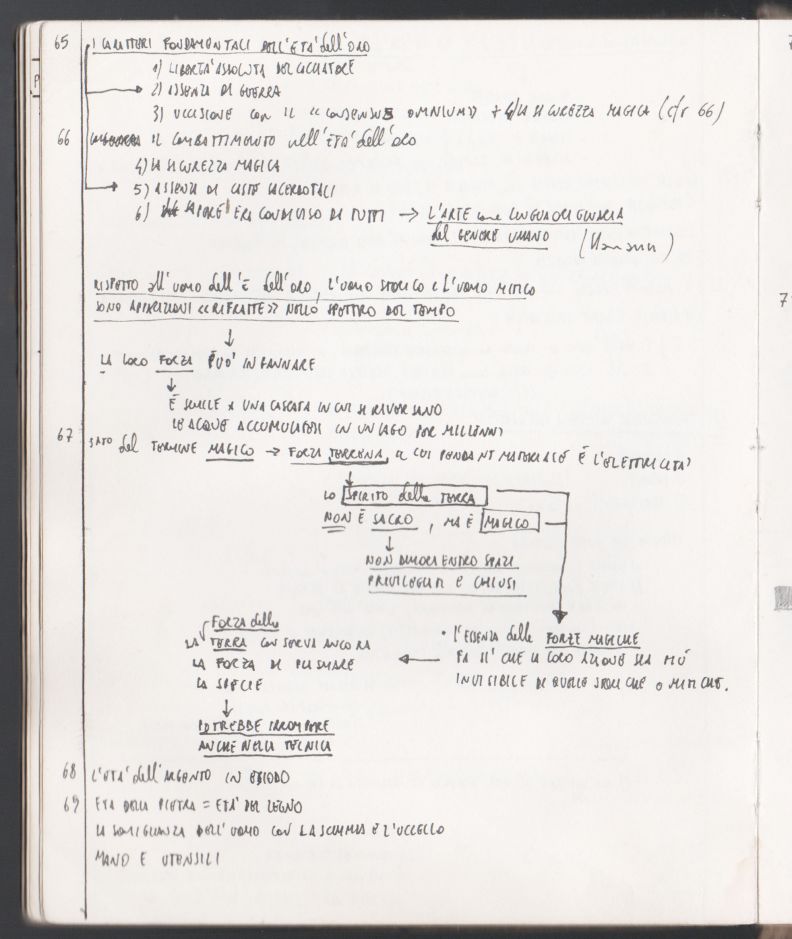 65 I CARATTERI FONDAMENTALI DELL'ETA' dell'ORO
1) LIBERTA' ASSOLUTA DEL CACCIATORE
2) ASSENZA DI GUERRA
3) UCCISIONE CON IL «CONSENSUS OMNIUM» + 4/LA SICUREZZA MAGICA (cfr 66)
66 IL COMBATTIMENTO nell'ETA' dell'ORO
4) LA SICUREZZA MAGICA
5) ASSENZA DI CASTE SACERDOTALI
6) SAPERE ERA CONDIVISO DA TUTTI → L'ARTE come LINGUA ORIGINARIA
del GENERE UMANO (Hamann)
RISPETTO all'uomo dell'E dell'ORO, L'UOMO STORICO E L'UOMO MITICO
SONO APPARIZIONI «RIFRATTE» NELLO SPETTRO DEL TEMPO
↓
LA LORO FORZA PUO' INGANNARE
↓
È SIMILE A UNA CASCATA IN CUI SI RIVERSANO
LE ACQUE ACCUMULATESI IN UN LAGO PER MILLENNI
67 del TERMINE MAGICO → FORZA TERRENA, IL CUI PENDANT MATERIALE È L'ELETTRICITA'
LO SPIRITO della TERRA
NON È SACRO, MA È MAGICO
↓
NON DIMORA ENTRO SPAZI
PRIVILEGIATI E CHIUSI
FORZA della
LA TERRA CONSERVA ANCORA
LA FORZA DI PLASMARE
LA SPECIE
↓
POTREBBE IRROMPERE
ANCHE NELLA TECNICA
• L'ESSENZA delle FORZE MAGICHE
FA SI' CHE LA LORO AZIONE SIA PIÙ
INVISIBILE DI QUELLE STORICHE O MITICHE.
68 L'ETA' dell'ARGENTO IN ESIODO
69 ETA DELLA PIETRA = ETA' DEL LEGNO
LA SOMIGLIANZA DELL'UOMO CON LA SCIMMIA E L'UCCELLO
MANO E UTENSILI